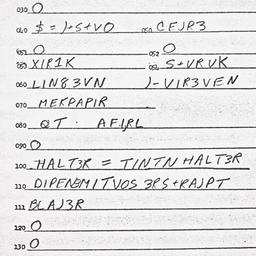 030 O
040 $ = 1+S+VO 050 CEJR3
051 O 052 O
053 XIP1K S+VRVK
060 LIN83VN 1-VIR3VEN
070 MEKPAPIR
080 QT. AFIRL
090 O
100 HALT3R = TINTN HALT3R
110 DIPENDMITVOS 3RS+RAJPT
111 BLAJ3R
120 O
130 O